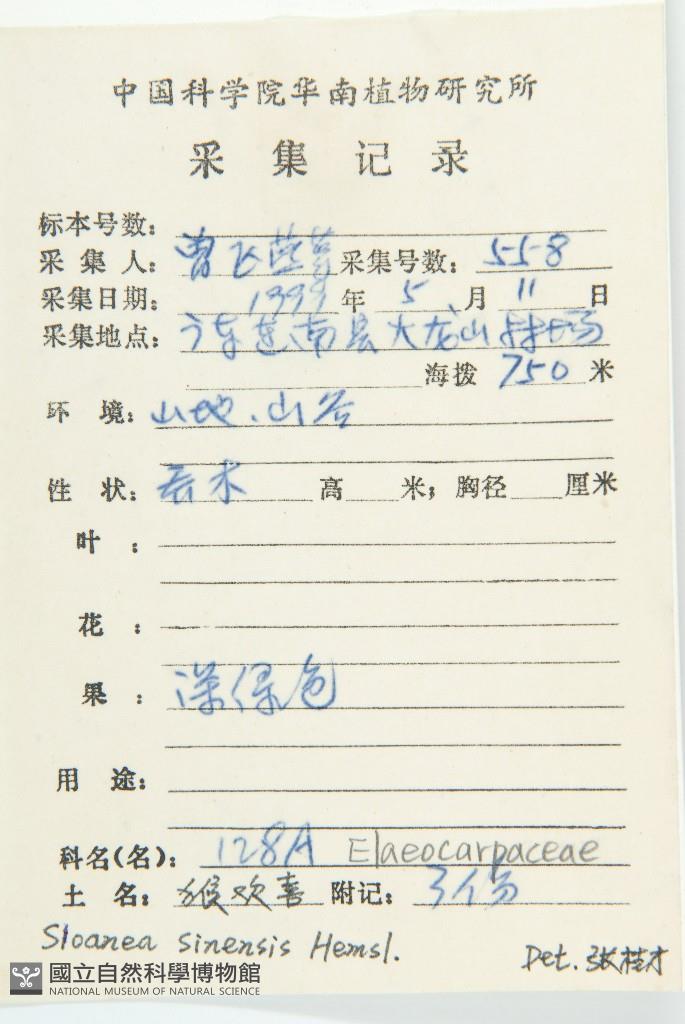 中国科学院华南植物研究所
采集记录
标本号数：
采集人：曾飞燕等 采集号数：558
采集日期：1999年5月11日
采集地点：广东连南县大龙山林场
海拨750米
环境：山地、山谷
性状：乔木 高 米；胸径 厘米
叶：
花：
果：深绿色
用途：
科名(名)：128A Elaeocarpaceae
土名：猴欢喜 附记：3份
Sloanea sinensis Hemsl.
Det. 张桂才
國立自然科學博物館
NATIONAL MUSEUM OF NATURAL SCIENCE